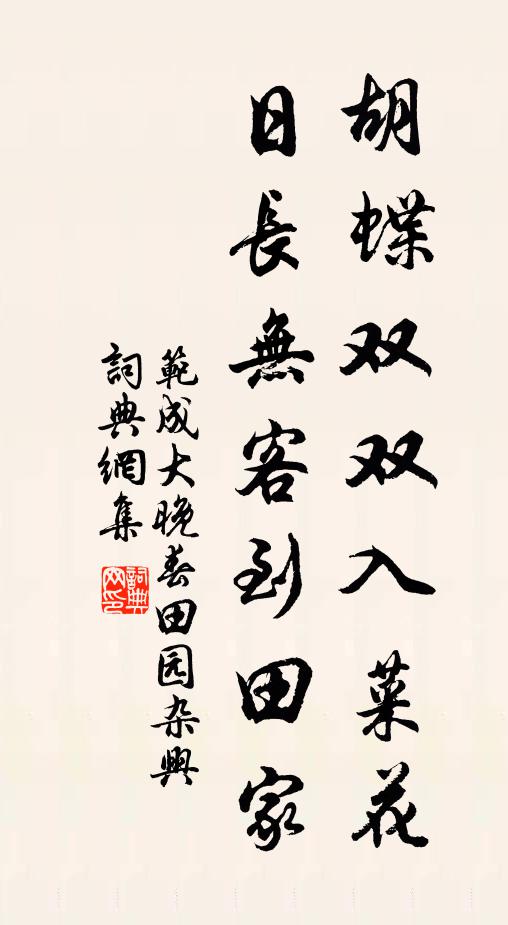 胡蝶双双入菜花
日長無客到田家
範成大晚春田园杂興
詞典網集
詞典网印